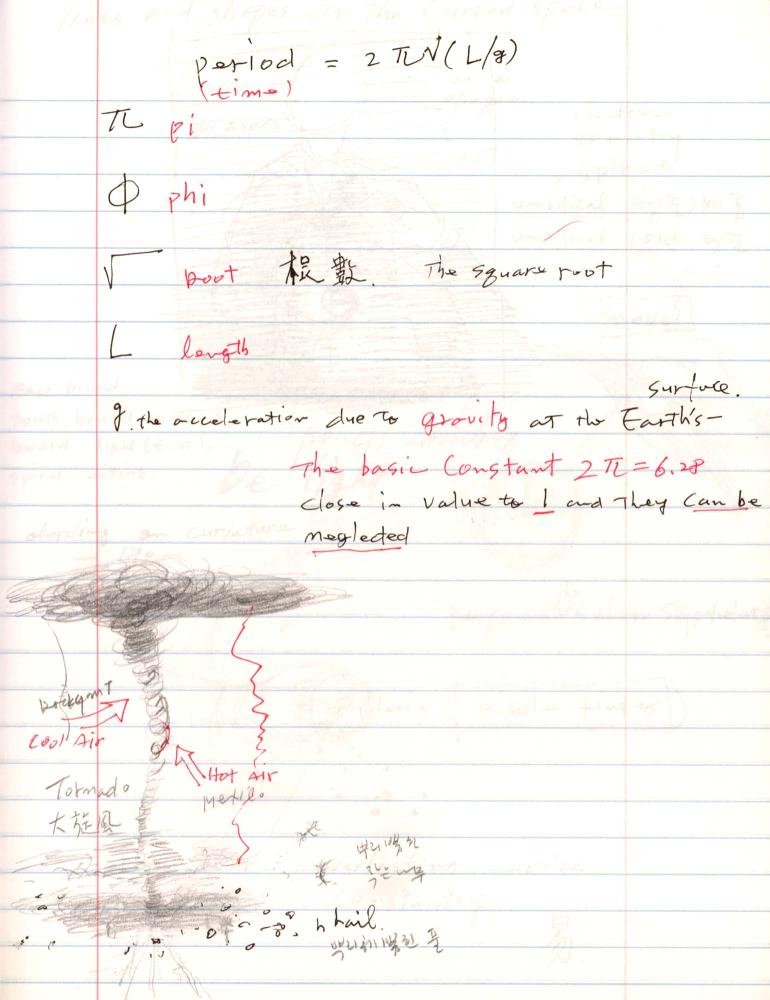 period = 2π√(L/g)
(time)
π pi
Φ phi
√ root 根數. The square root
L length
surface.
g. the acceleration due to gravity at the Earth's-
The basic Constant 2π=6.28
close in value to 1 and They can be
neglected
Cool Air
Hot Air
Mexico
Tornado
大旋風
뿌리 뽑힌
작은 나무
hail.
뿌리채 뽑힌 풀